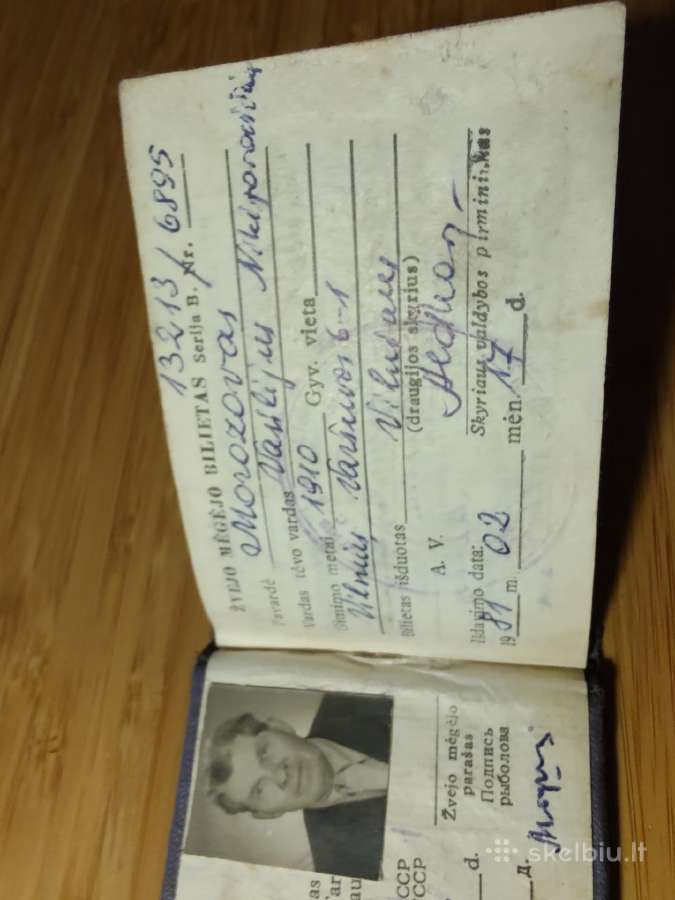 13213/6895
ŽVEJO MĖGĖJO BILIETAS Serija B. Nr.
Pavardė Morozovas
Vardas tėvo vardas Vasilijus
Gimimo metai 1910 Gyv. vieta
Vilnius, Varšuvos 6-1
Bilietas išduotas Vilniaus
(draugijos skyrius)
A. V.
Skyriaus valdybos pirmininkas
Išdavimo data:
1981 m. 02 mėn. 17 d.
СССР
ССР
Žvejo mėgėjo
parašas
Подпись
рыболова
d.
д.
skelbiu.lt